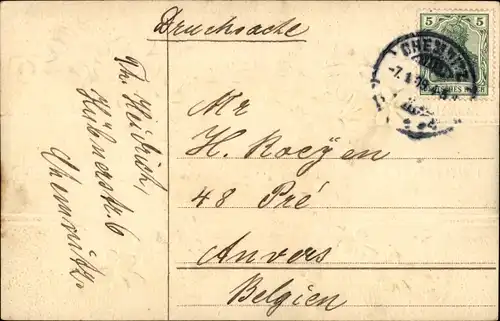 Drucksache
5 5
CHEMNITZ
-7.1.
DEUTSCHES REICH
Mr
H. Roeyen
48 Pré
Anvers
Belgien
Th. Heidrich,
Hübnerstr. 6
Chemnitz